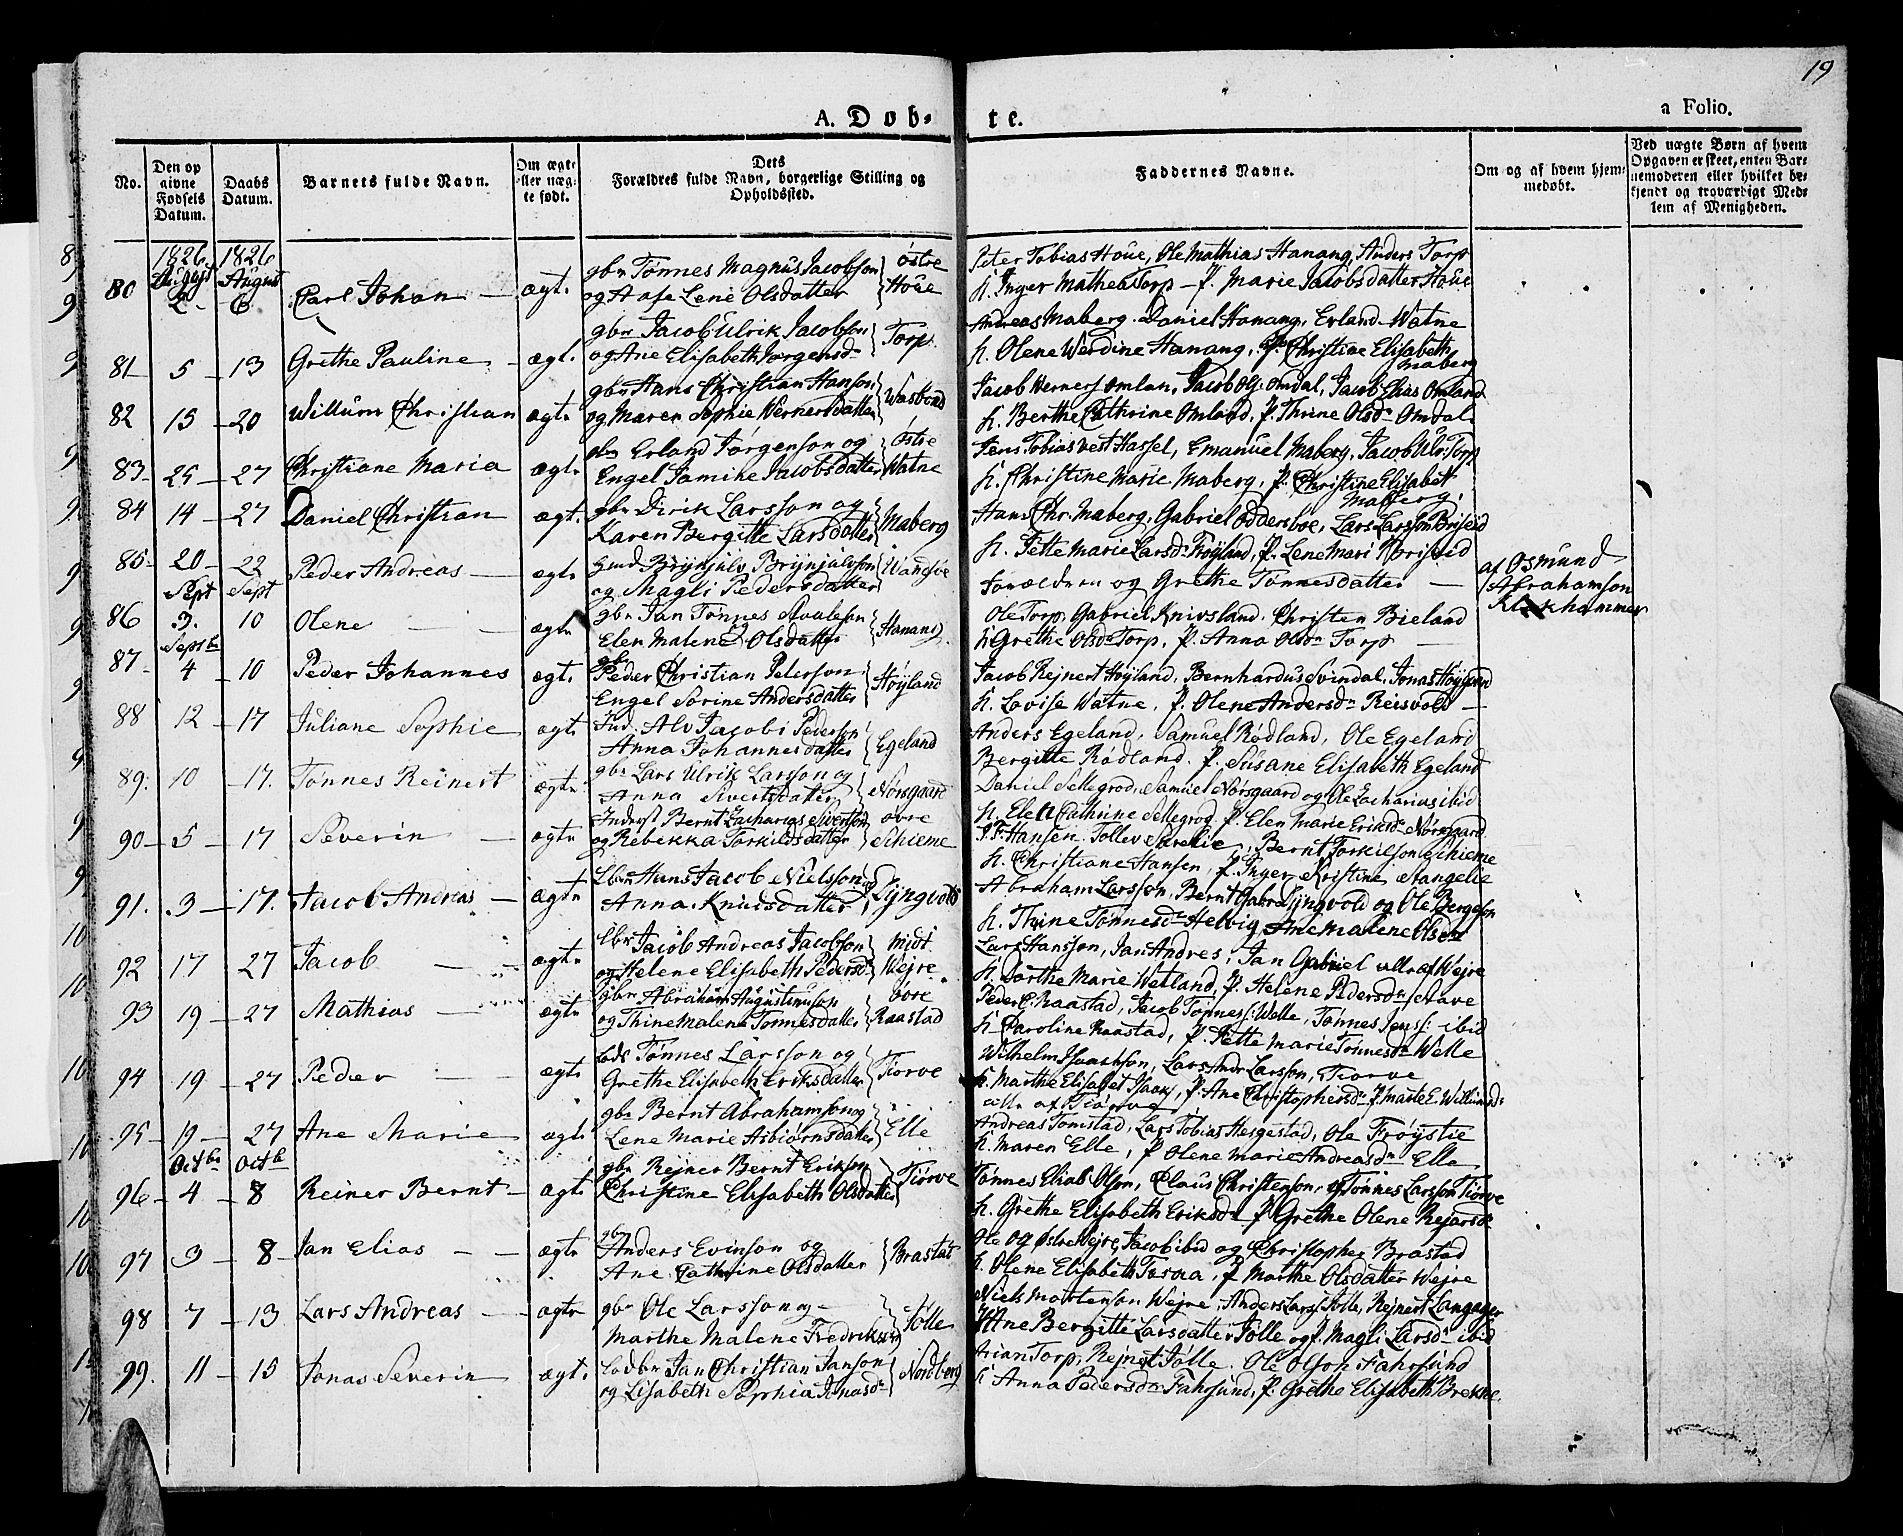 19
A. Døb-
te.
a Folio.
No.
Den op
givne
Fødsels
Datum.
Daabs
Datum.
Barnets fulde Navn.
Om ægte
eller uæg-
te født.
Dets
Forældres fulde Navn, borgerlige Stilling og
Opholdssted.
Faddernes Navne.
Om og af hvem hjem-
medøbt.
Ved uægte Børn af hvem
Opgaven er skeet, enten Bar-
nemoderen eller hvilket be-
kjendt og troværdigt Med-
lem af Menigheden.
1826 1826
August August
80 2 6 Carl Johan ægt. gbr Tønnes Magnus Jacobson
og Aase Lene Olsdatter østre Houe
Peter Tobias Houe, Ole Mathias Hanang, Anders Torp
K. Inger Mathea Torp - P. Marie Jacobsdatter Houe
81 5 13 Grethe Pauline ægt. gbr Jacob Ulrik Jacobson
og Ane Elisabeth Jørgensd. Torp
Andreas Maberg. Daniel Hanang, Erland Watne
K. Olene Werdine Hanang, P. Christine Elisabeth
Maberg
82 15 20 Willum Christian ægte gbr Hans Christian Hanson
og Maren Sophie Wernersdatter
Jacob Werners: Omlan, Jacob Ols: Omdal, Jacob Elias Omland
K. Berthe Cathrine Omland, P. Thrine Olsd. Omdal
83 25 27 Christiane Maria ægte Erland Jørgenson og
Engel Jamine Jacobsdatter østre Watne
Jens Tobias vest Hassel, Emanuel Maberg, Jacob Ulr: Torp
K. Christine Marie Maberg, P. Christine Elisabet
Maberg.
84 14 27 Daniel Christian ægt. gbr Dirik Larsson og
Karen Bergitte Larsdatter Maberg
Hans Chr. Maberg, Gabriel Oddersboe, Lars Larsson Briseid
85 20 22 Peder Andreas ægte Brynjulv Brynjulvson
og Magli Pedersdatter
K. Jette Marie Larsd. Frøyland, P. Lene Mari
Forældrene og Grethe Tønnesdatter
af Osmund
Abrahamson
Klekhammer
Sept Sept
86 3 10 Olene ægte gbr Jan Tønnes
Elen Malene Olsdatter Hanang
Ole Torp, Gabriel Knivsland, Christen Bieland
K. Grethe Olsd. Torp, P. Anna Olsdr Torp
Septb
87 4 10 Peder Johannes ægt. Peder Christian Peterson
Engel Sorine Andersdatter Høyland
Jacob Rejnert Høyland, Bernhardus Svindal, Jonas Høyland
K. Lovise Watne, P. Olene Andersd. Reisvold
88 12 17 Juliane Sophie ægt. Ind. Alv Jacobi Pederson
Anna Johannesdatter Egeland
Anders Egeland, Samuel Rødland, Ole Egeland
Bergitte Rødland. P. Susane Elisabeth Egeland
89. 10 17. Tønnes Reinert ægte gbr Lars Ulrik Larsson og
Anna Sivertsdatter Norsgaard
Daniel Sellegrod, Samuel Norsgaard og Ole Zacharius ibid
K. Elen Cathrine Sellegrod, P. Elen Marie Eriksd. Norsgaard
90 5 17 Severin ægte Inderst Bernt Zacharias Siverson
og Rebekka Torkildsdatter øvre Schieme
Hansen. Tollev, Bernt Torkilson Schieme
K. Christiane Hansen, P. Inger Kristine
91. 3 17. Jacob Andreas ægte Lbr Hans Jacob Nielsson og
Anna Knudsdatter Lyngvold
Abraham Larsson, Bernt Gabr. Lyngvold og Ole Bergeson
K. Thine Tønnesd. Helvig, Ane Malene Olsdtr
92 17 27 Jacob ægte Lbr Jacob Andreas Jacobson
og Helene Elisabeth Pedersd. midt. Wejre
Lars Hansson, Jan Andres, Jan Gabriel alle af Wejre
K. Dorthe Marie Wetland, P. Helene Pedersd. Stave
93 19 27 Mathias ægte gbr Abraham Augustinuson
og Thine Malene Tønnesdatter øvre Raastad
Peder C. Raastad, Jacob Tønness: Welle, Tønnes Jenss: ibid
K. Caroline Raastad, P. Jette Marie Tønnesd. Welle
94 19 27 Peder ægte Lods Tønnes Larsson og
Grethe Elisabeth Eriksdatter Tiørve
Wilhelm Isaachson, Lars Andr. Larsson, Tiørve
K. Marthe Elisabet Isaaks, P. Ane Christophersd. P. Marte E. Willumsd.
alle af Tiørve
95 19 27 Ane Marie ægt. gbr Bernt Abrahamson og
Lene Marie Asbiørnsdatter Elle
Andreas Tomstad, Lars Tobias Hesgestad, Ole Frøystie
K. Maren Elle, P. Olene Marie Andreasd. Elle
Octbr Octb
96 4 8 Reiner Bernt ægt. gbr Rejner Bernt Erikson
Christine Elisabeth Olsdatter Tiørve
Tønnes Elias Olson, Claus Christenson, og Tønnes Larsson Tiørve
K. Grethe Elisabeth Eriksd. P. Grethe Olene Rejersd.
97 3 8 Jan Elias ægte gbr Anders Evinson og
Ane Cathrine Olsdatter Brastad
Ole og østre Wejre, Jacob ibid og Christopher Brastad
K. Olene Elisabeth, P. Marthe Olsdatter Wejre
98 7 13 Lars Andreas ægte gbr Ole Larsson og
Marthe Malene Fredriksd. Jølle
Niels Mortenson Wejre, Anders Larss: Jølle, Rejnert Langager
K. Ane Bergitte Larsdatter Jølle og P. Magli Larsd. ibid
99. 11 15 Jonas Severin ægt. Lodbr Jan Christian Janson
og Lisabeth Sophia Jonasd. Nordberg
Arian Torp, Rejnert Jølle. Ole Olson Fahrsund
K. Anna Pedersd. Fahrsund, P. Grethe Elisabeth Brekke